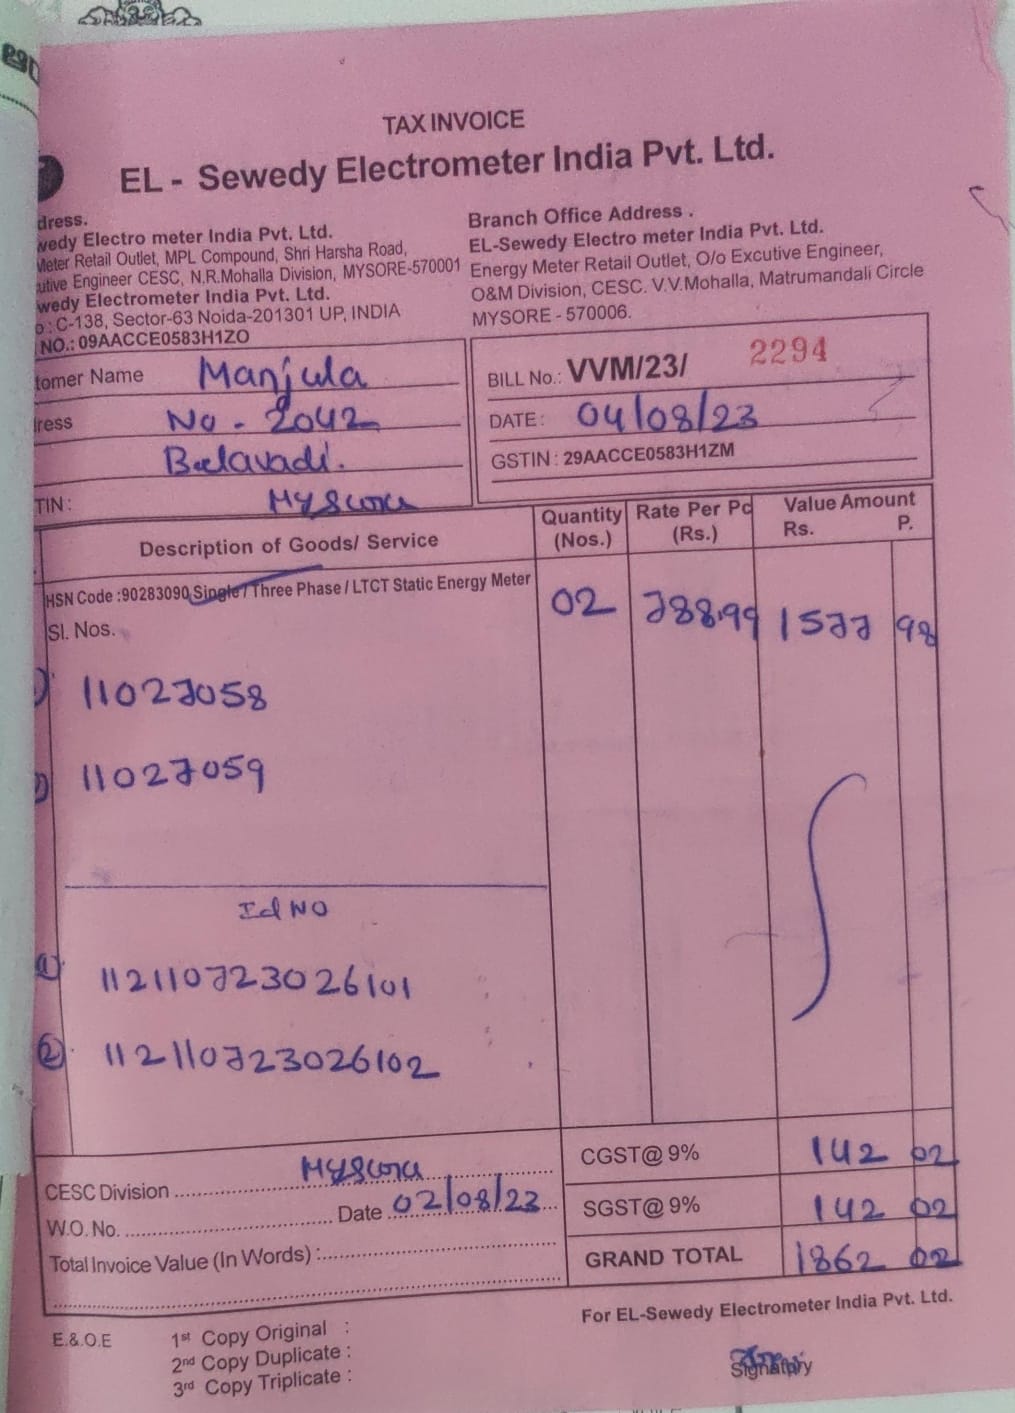 TAX INVOICE
EL - Sewedy Electrometer India Pvt. Ltd.
dress.
wedy Electro meter India Pvt. Ltd.
Meter Retail Outlet, MPL Compound, Shri Harsha Road,
utive Engineer CESC, N.R.Mohalla Division, MYSORE-570001
wedy Electrometer India Pvt. Ltd.
o : C-138, Sector-63 Noida-201301 UP, INDIA
NO.: 09AACCE0583H1ZO
Branch Office Address .
EL-Sewedy Electro meter India Pvt. Ltd.
Energy Meter Retail Outlet, O/o Excutive Engineer,
O&M Division, CESC. V.V.Mohalla, Matrumandali Circle
MYSORE - 570006.
tomer Name Manjula
ress No - 2042
Belavadi.
TIN : Mysuru
BILL No.: VVM/23/ 2294
DATE : 04/08/23
GSTIN : 29AACCE0583H1ZM
Description of Goods/ Service Quantity (Nos.) Rate Per Pc (Rs.) Value Amount Rs. P.
HSN Code :90283090 Single / Three Phase / LTCT Static Energy Meter 02 788.99 1577 98
Sl. Nos.
1) 11027058
2) 11027059
Id NO
1) 112110723026101
2) 112110723026102
CESC Division Mysuru
W.O. No. Date 02/08/23
Total Invoice Value (In Words) :
CGST@ 9% 142 02
SGST@ 9% 142 02
GRAND TOTAL 1862 02
For EL-Sewedy Electrometer India Pvt. Ltd.
E.&.O.E
1st Copy Original :
2nd Copy Duplicate :
3rd Copy Triplicate :
Signatory